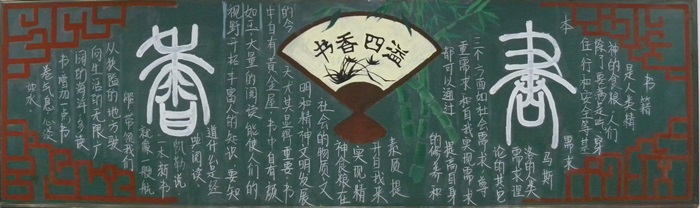 书香四溢
書
香
书籍
是人类精
神的食粮。人们
除了要满足衣、食
住、行和安全等基
本
需求
马斯
洛的人类
需求理
论的其它
三个方面如社会需求、尊
重需求和自我实现需求
都可以通过
提高自身
的修养和
素质提
升自我来
实现精
神食粮在
社会的物质文
明和精神文明发展
的今天尤其显得重要。书
中自有黄金屋，书中自有颜
如玉大量的阅读能使人们的
视野开拓丰富人的知识。要知
道什么是经
典阅读。
凯勒说
一本新书
就像一艘船
带领我们
从狭隘的地方驶
向生活的无限广
阔的海洋。多读
书增加点书
卷气息